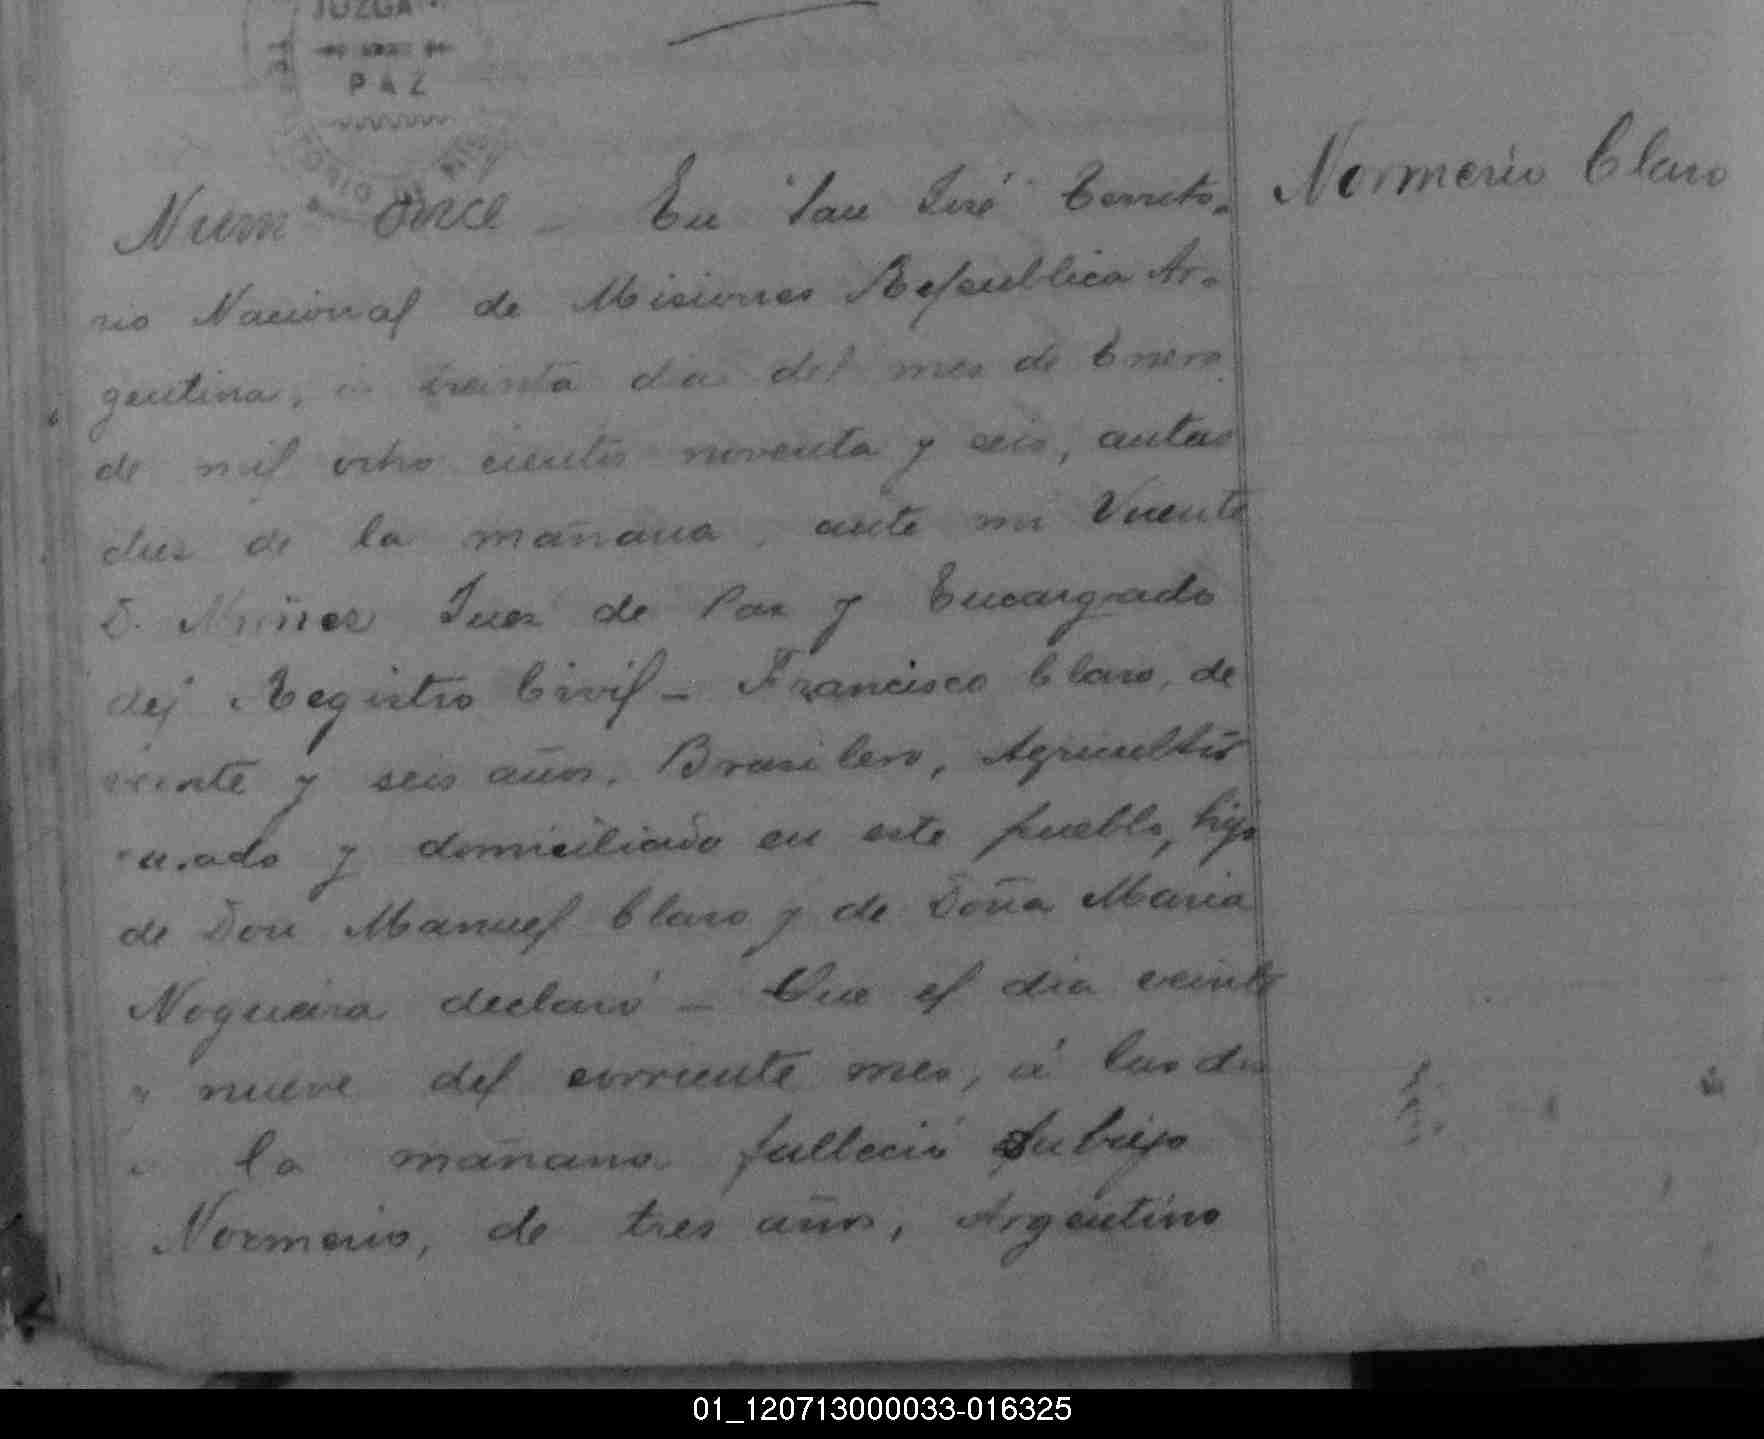 JUZGA
PAZ
Normerio Claro
Num° Once - En San José Territo-
rio Nacional de Misiones Republica Ar-
gentina, á treinta dias del mes de Enero
de mil ocho cientos noventa y seis, antas
dies de la mañana, ante mi Vicente
D. Nuñez Juez de Paz y Encargado
del Registro Civil - Francisco Claro, de
veinte y seis años, Brasilero, Agricultor
casado y domiciliado en este pueblo, hijo
de Don Manuel Claro y de Doña Maria
Nogueira declaró - Que el dia veinte
y nueve del corriente mes, á las dos
la mañana falleció su hijo
Normerio, de tres años, Argentino
01_120713000033-016325